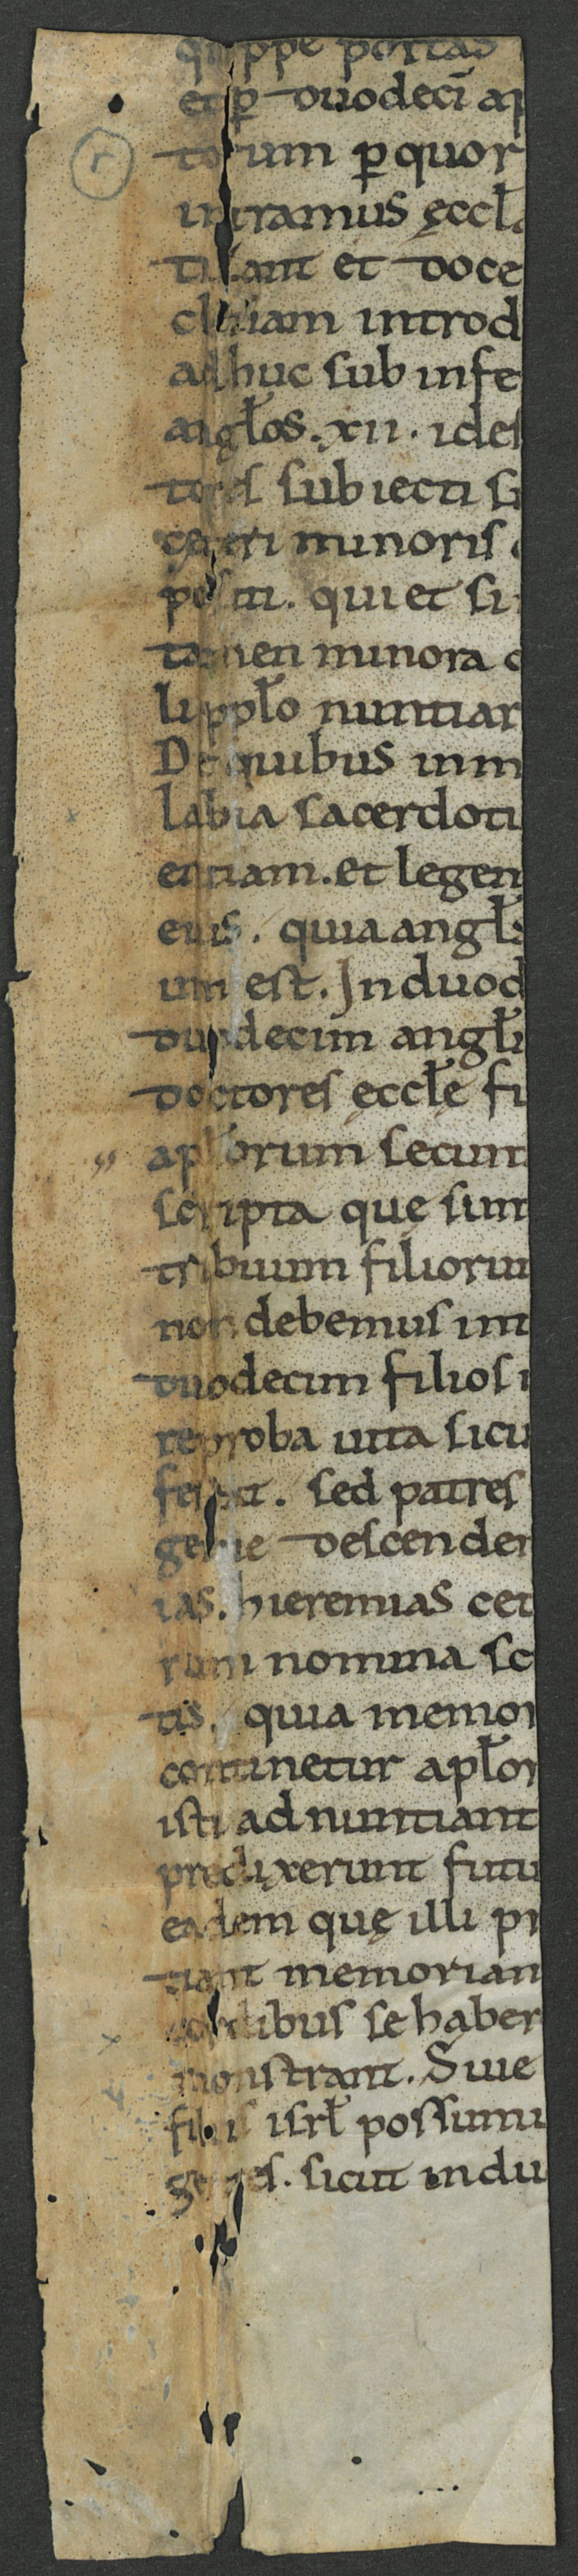 quippe portas
et p̄ duodecī ap
torum p̄ quor
intramus ęccl̄
tizant et doce
clesiam introd
adhuc sub infe
angl̄os. xii. ides
tores subiecti s
ceteri minoris
positi. qui et si
tamen minora
li ppl̄o nuntiar
De quibus inm
labia sacerdoti
entiam. et legen
eius. quia angl̄s
um est. In duod
duodecim angl̄i
doctores ęccl̄ę fi
apl̄orum secun
scripta que sunt
tribuum filioru
non debemus int
duodecim filios i
reproba uita sicu
fecit. sed patres
gerie descender
ias. hieremias cet
rum nomina sc
tis. quia memor
continetur apl̄or
isti adnuntiant
predixerunt futu
eadem quę illi pr
tiant memoriam
cordibus se haber
monstrant. Siue
filiis isrl̄ possumu
gentes. sicut in du
r